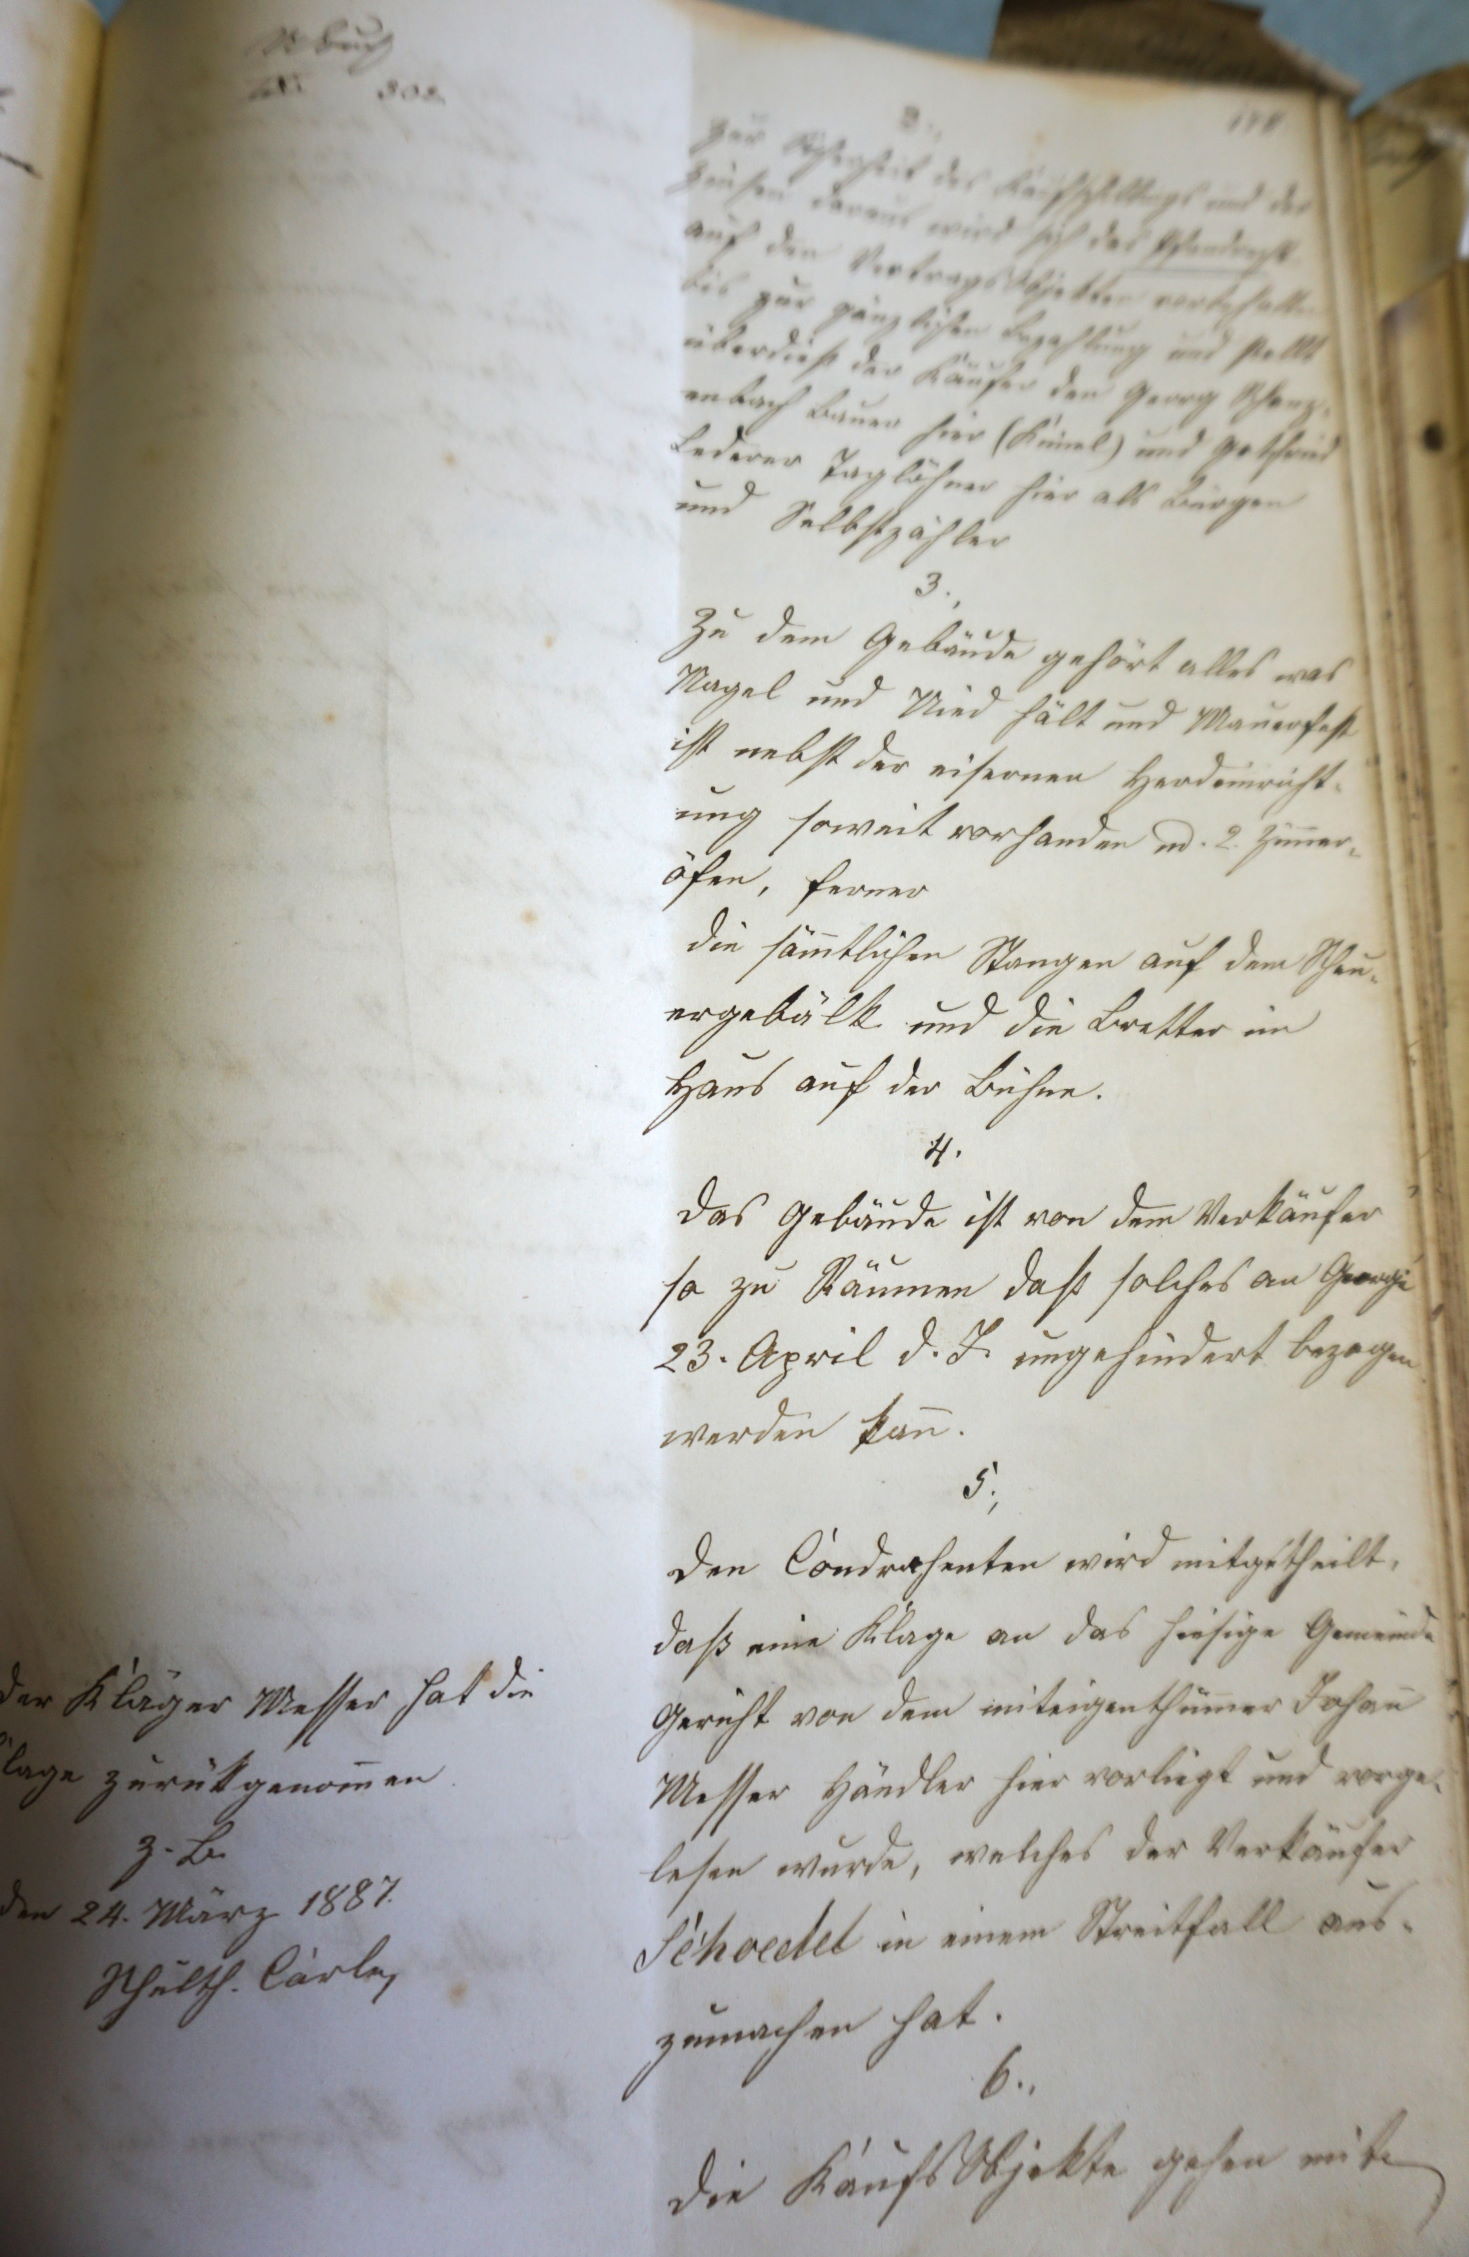 308.
178
2.,
Zur Sicherheit des Kaufschillings und der
Zinsen daraus wird sich das Pfandrecht
auf den Vertragsobjekten vorbehalten
bis zur gänzlichen Bezahlung und stellt
überdieß der Käufer den Georg
Bauer hier (Kümel) und Gottfried
Lederer Taglöhner hier als Bürgen
und Selbstzahler
3.,
Zu dem Gebäude gehört alles was
Nagel und Nied hält und Mauerfest
ist nebst der eisernen Herdeinricht-
ung soweit vorhanden u. 2. Zim̄er-
öfen, ferner
die säm̄tlichen Stangen auf dem Scheu-
ergebälk und die Bretter im
Haus auf der Bühne.
4.
Das Gebäude ist von dem Verkäufer
so zu Räumen daß solches an Georgi
23. April d. J. ungehindert bezogen
werden kan̄.
5.,
Den Condrahenten wird mitgetheilt,
daß eine Klage an das hiesige Gemeinde
Gericht von dem miteigenthümer Johan̄
Messer Händler hier vorliegt und vorge-
lesen wurde, welches der Verkäufer
Schoedel in einem Streitfall aus-
zumachen hat.
6.,
Die KaufsObjekte gehen mit
der Kläger Messer hat die
lage zurükgenom̄en
Z. B.
den 24. März 1887.
Schulth. Carle